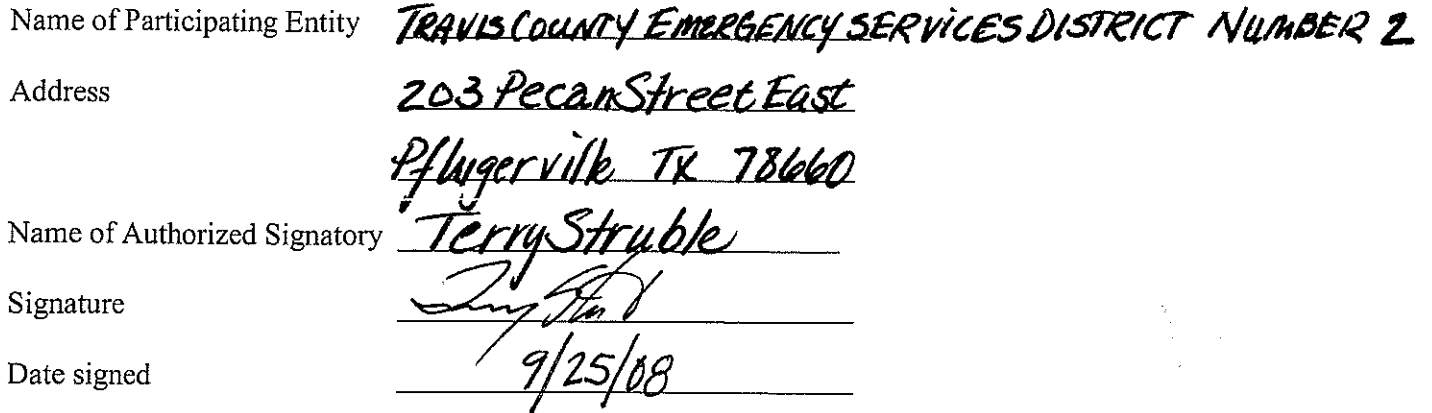 Name of Participating Entity TRAVIS COUNTY EMERGENCY SERVICES DISTRICT NUMBER 2
Address 203 Pecan Street East
Pflugerville TX 78660
Name of Authorized Signatory Terry Struble
Signature
Date signed 9/25/08